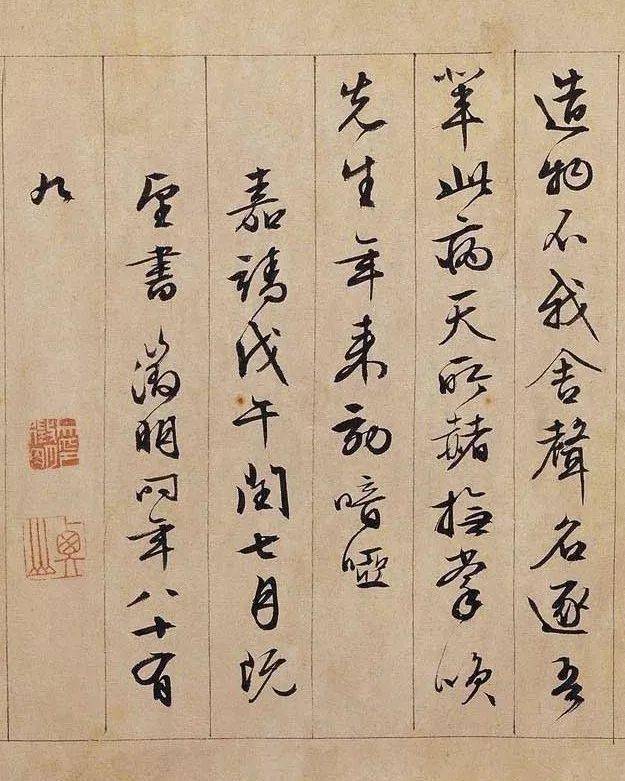 造物不我舍聲名逐吾
輩此病天所赭撫掌咲
先生年來効喑啞
嘉靖戊午閏七月既
望書 徵明時年八十有
九